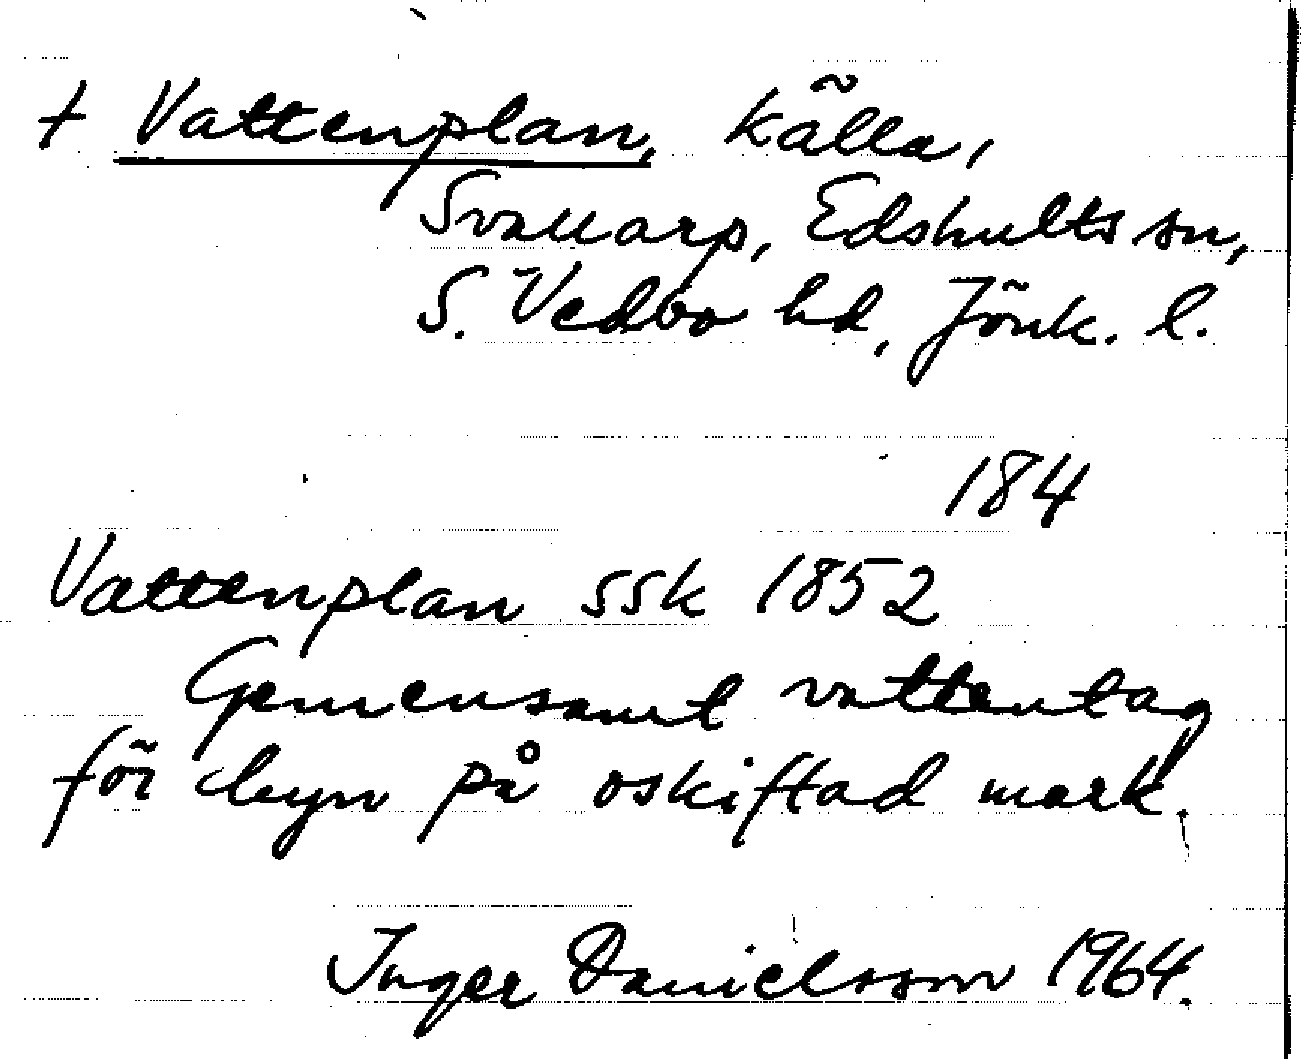 † Vattenplan, källa,
Svallarp, Edshults sn,
S. Vedbo hd, Jönk. l.
184
Vattenplan ssk 1852
Gemensamt vattentag
för byn på oskiftad mark.
Inger Danielsson 1964.